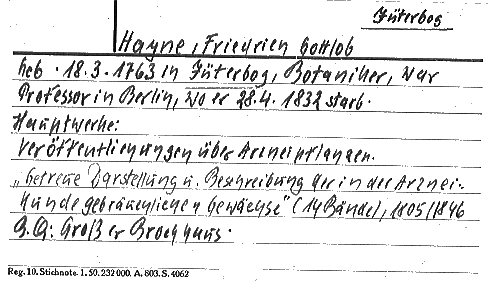 Jüterbog
Hayne, Friedrich Gottlob
geb. 18.3.1763 in Jüterbog, Botaniker, war
Professor in Berlin, wo er 28.4.1832 starb.
Hauptwerke:
Veröffentlichungen über Arzneipflanzen.
"Getreue Darstellung u. Beschreibung der in der Arznei-
kunde gebräuchlichen Gewächse" (14 Bände), 1805/1846
B.Q: Großer Brockhaus.
Reg. 10. Stichnote. 1. 50. 232 000. A. 803. S. 4062